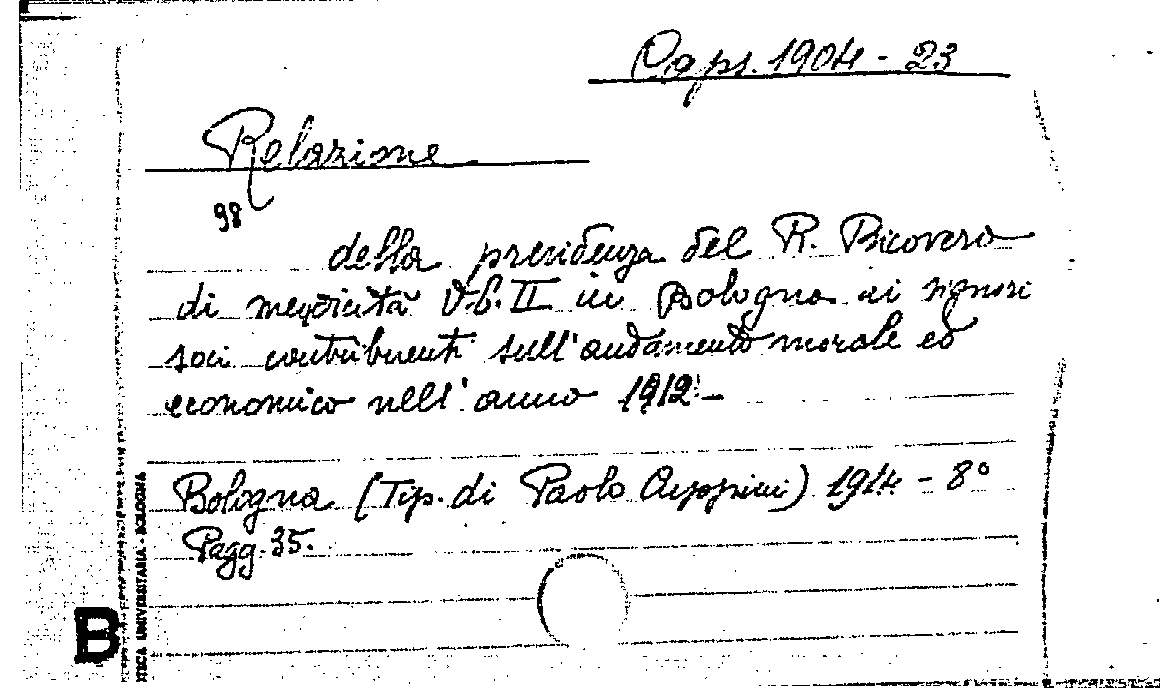 Caps. 1904 - 23
Relazione
98
della presidenza del R. Ricovero
di mendicità V. E. II in Bologna ai signori
soci contribuenti sull'andamento morale ed
economico nell'anno 1912.-
Bologna (Tip. di Paolo Cuppini) 1914 - 8°
Pagg. 35.
B
TECA UNIVERSITARIA - BOLOGNA